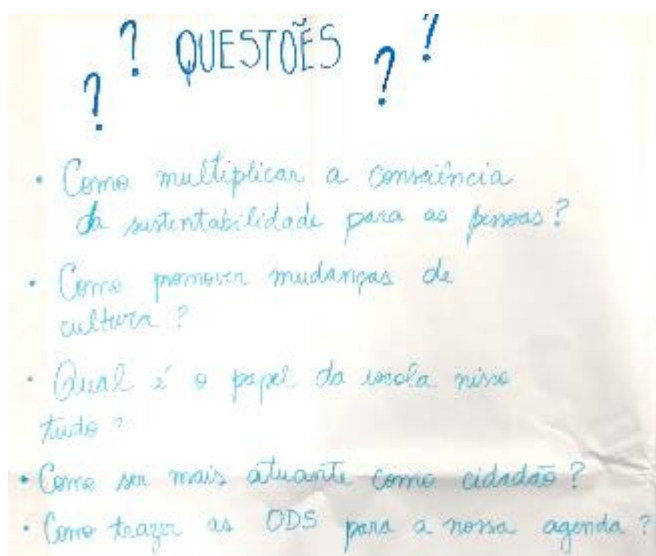 ? ? QUESTÕES ? ?
• Como multiplicar a consciência
da sustentabilidade para as pessoas?
• Como promover mudanças de
cultura?
• Qual é o papel da escola nisso
tudo?
• Como ser mais atuante como cidadão?
• Como trazer as ODS para a nossa agenda?